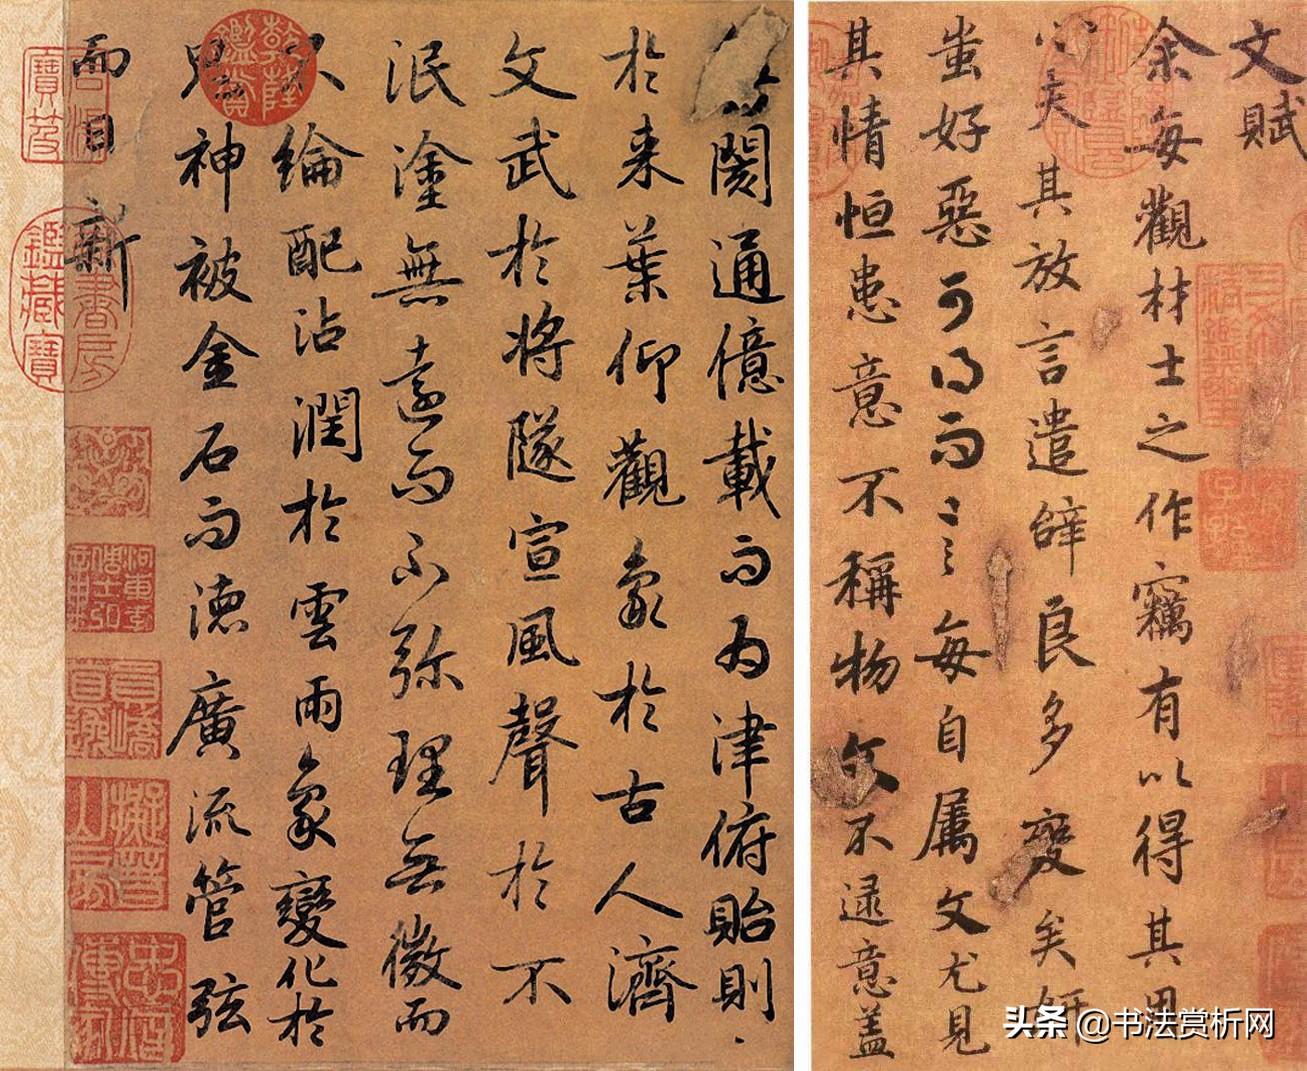 文賦
余每觀材士之作竊有以得其用
心矣其放言遣辭良多變矣妍
蚩好惡可得而言每自属文尤見
其情恒患意不稱物文不逮意盖
閡通億載而為津俯貽則
於来葉仰觀象於古人濟
文武於將隧宣風聲於不
泯塗無遠而不弥理無微而
不綸配沾潤於雲雨象變化於
鬼神被金石而徳廣流管弦
而日新
乾隆鑑賞
石渠寶笈
御書房鑑藏寶
头条 @书法赏析网